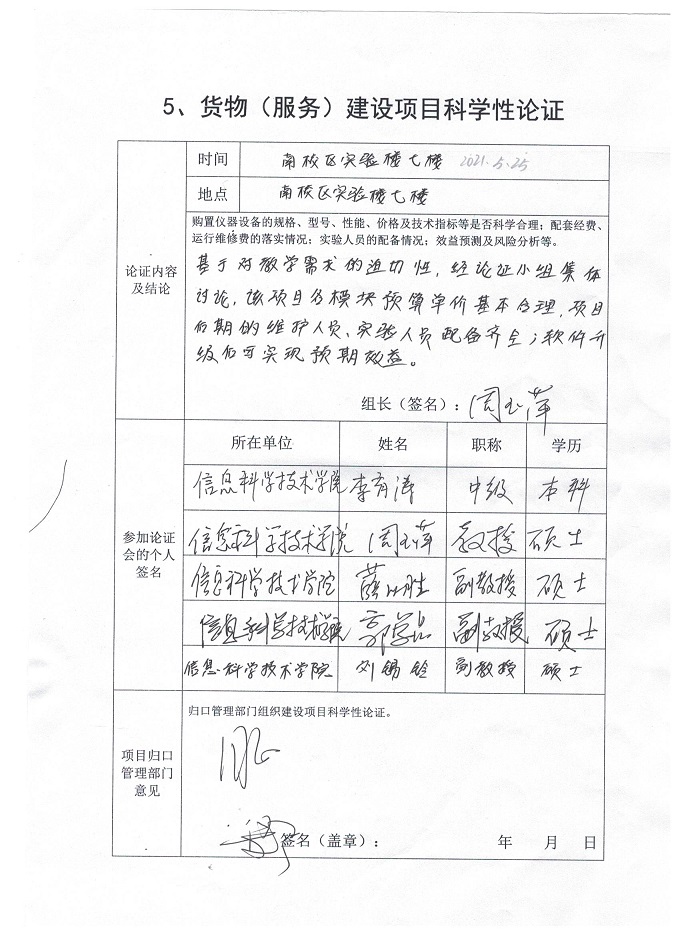 5、货物（服务）建设项目科学性论证
时间 南校区实验楼七楼 2021.5.25
地点 南校区实验楼七楼
购置仪器设备的规格、型号、性能、价格及技术指标等是否科学合理；配套经费、
运行维修费的落实情况；实验人员的配备情况；效益预测及风险分析等。
论证内容
及结论
基于对教学需求的迫切性，经论证小组集体
讨论，该项目各模块预算单价基本合理，项目
后期的维护人员、实验人员配备齐全；软件升
级后可实现预期效益。
组长（签名）：周玉萍
所在单位 姓名 职称 学历
参加论证
会的个人
签名
信息科学技术学院 李育涛 中级 本科
信息科学技术学院 周玉萍 教授 硕士
信息科学技术学院 副教授 硕士
信息科学技术学院 副教授 硕士
信息科学技术学院 刘锡铃 副教授 硕士
项目归口
管理部门
意见
归口管理部门组织建设项目科学性论证。
签名（盖章）： 年 月 日